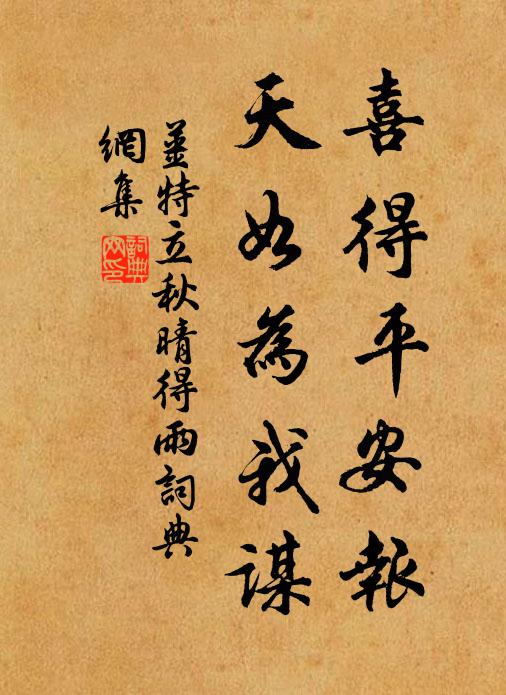 喜得平安報
天如為我謀
姜特立秋晴得雨詞典
網集
詞典網印